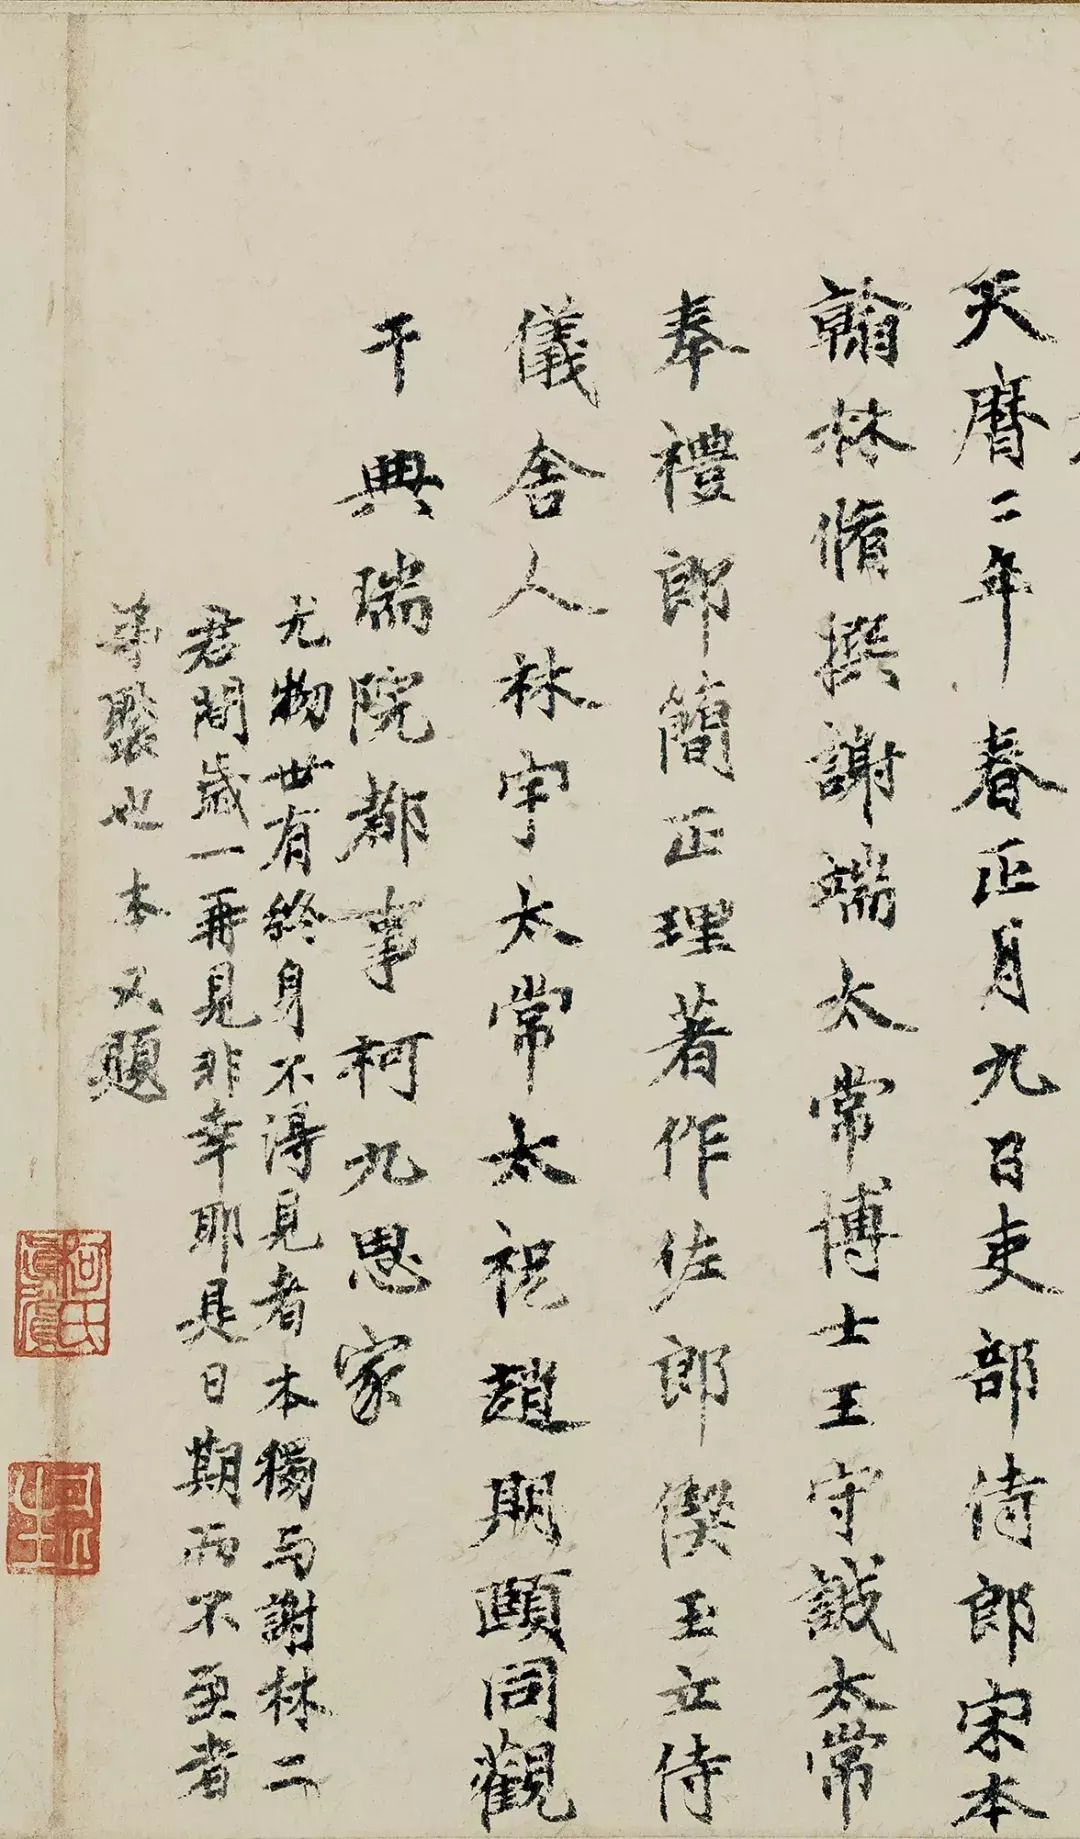 天曆二年春正月九日吏部侍郎宋本
翰林脩撰謝端太常博士王守誠太常
奉禮郎簡正理著作佐郎偰玉立侍
儀舍人林宇太常太祝趙期頤同觀
于典瑞院都事柯九思家
尤物世有終身不得見者本獨与謝林二
君間歲一再見非幸耶是日期而不至者
弟褧也本又題
柯氏